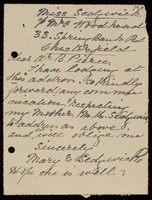 Miss Sedgwick
℅ Mrs Woodhead
33. Spring Bank Rd
Chesterfield
Dear Dr B Pierce,
I have lodging at
this address. Kindly
forward any commu-
nication respecting
my Mother, Mrs M. Sedgwick
to address as above &
and oblige me
Sincerely
Mary E Sedgwick
Hope she is well?